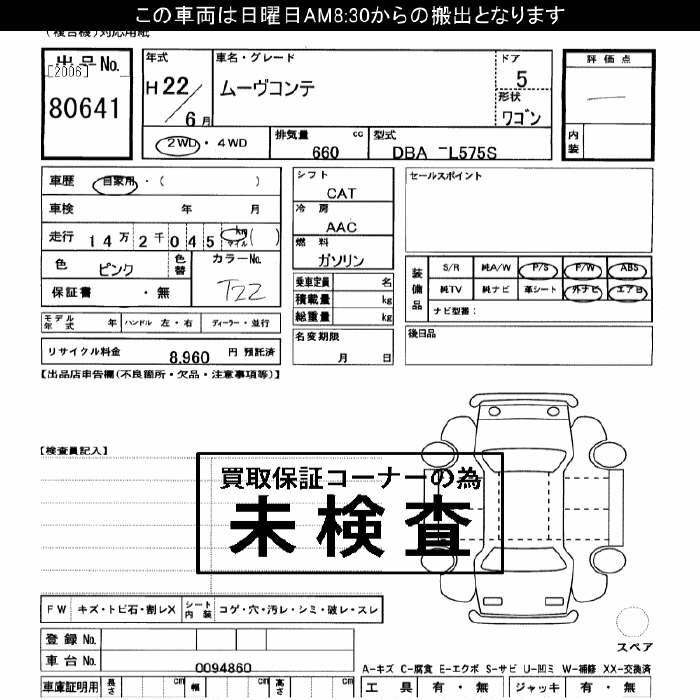 この車両は日曜日AM8:30からの搬出となります
(複合機)対応用紙
出品No.
[2006]
80641
年式
H 22 / 6 月
車名・グレード
ムーヴコンテ
ドア
5
形状
ワゴン
評価点
―
内装
2WD・4WD
排気量 cc
660
型式
DBA -L575S
車歴 自家用・( )
車検 年 月
走行 14万2千045 km マイル ( )
色 ピンク
色替
カラーNo.
T22
保証書 ・ 無
シフト
CAT
冷房
AAC
燃料
ガソリン
乗車定員 名
積載量 kg
総重量 kg
名変期限
月 日
セールスポイント
装備品
S/R 純A/W P/S P/W ABS
純TV 純ナビ 革シート 外ナビ エアB
ナビ型番:
後日品
モデル年式 年 ハンドル 左・右 ディーラー・並行
リサイクル料金 8,960 円 預託済
【出品店申告欄(不良箇所・欠品・注意事項等)】
【検査員記入】
買取保証コーナーの為
未検査
FW キズ・トビ石・割レX シート内装 コゲ・穴・汚レ・シミ・破レ・スレ
登録 No.
車台 No. 0094860
車庫証明用 長さ cm 幅 cm 高さ cm
スペア
A-キズ C-腐食 E-エクボ S-サビ U-凹ミ W-補修 XX-交換済
工具 有・無 ジャッキ 有・無